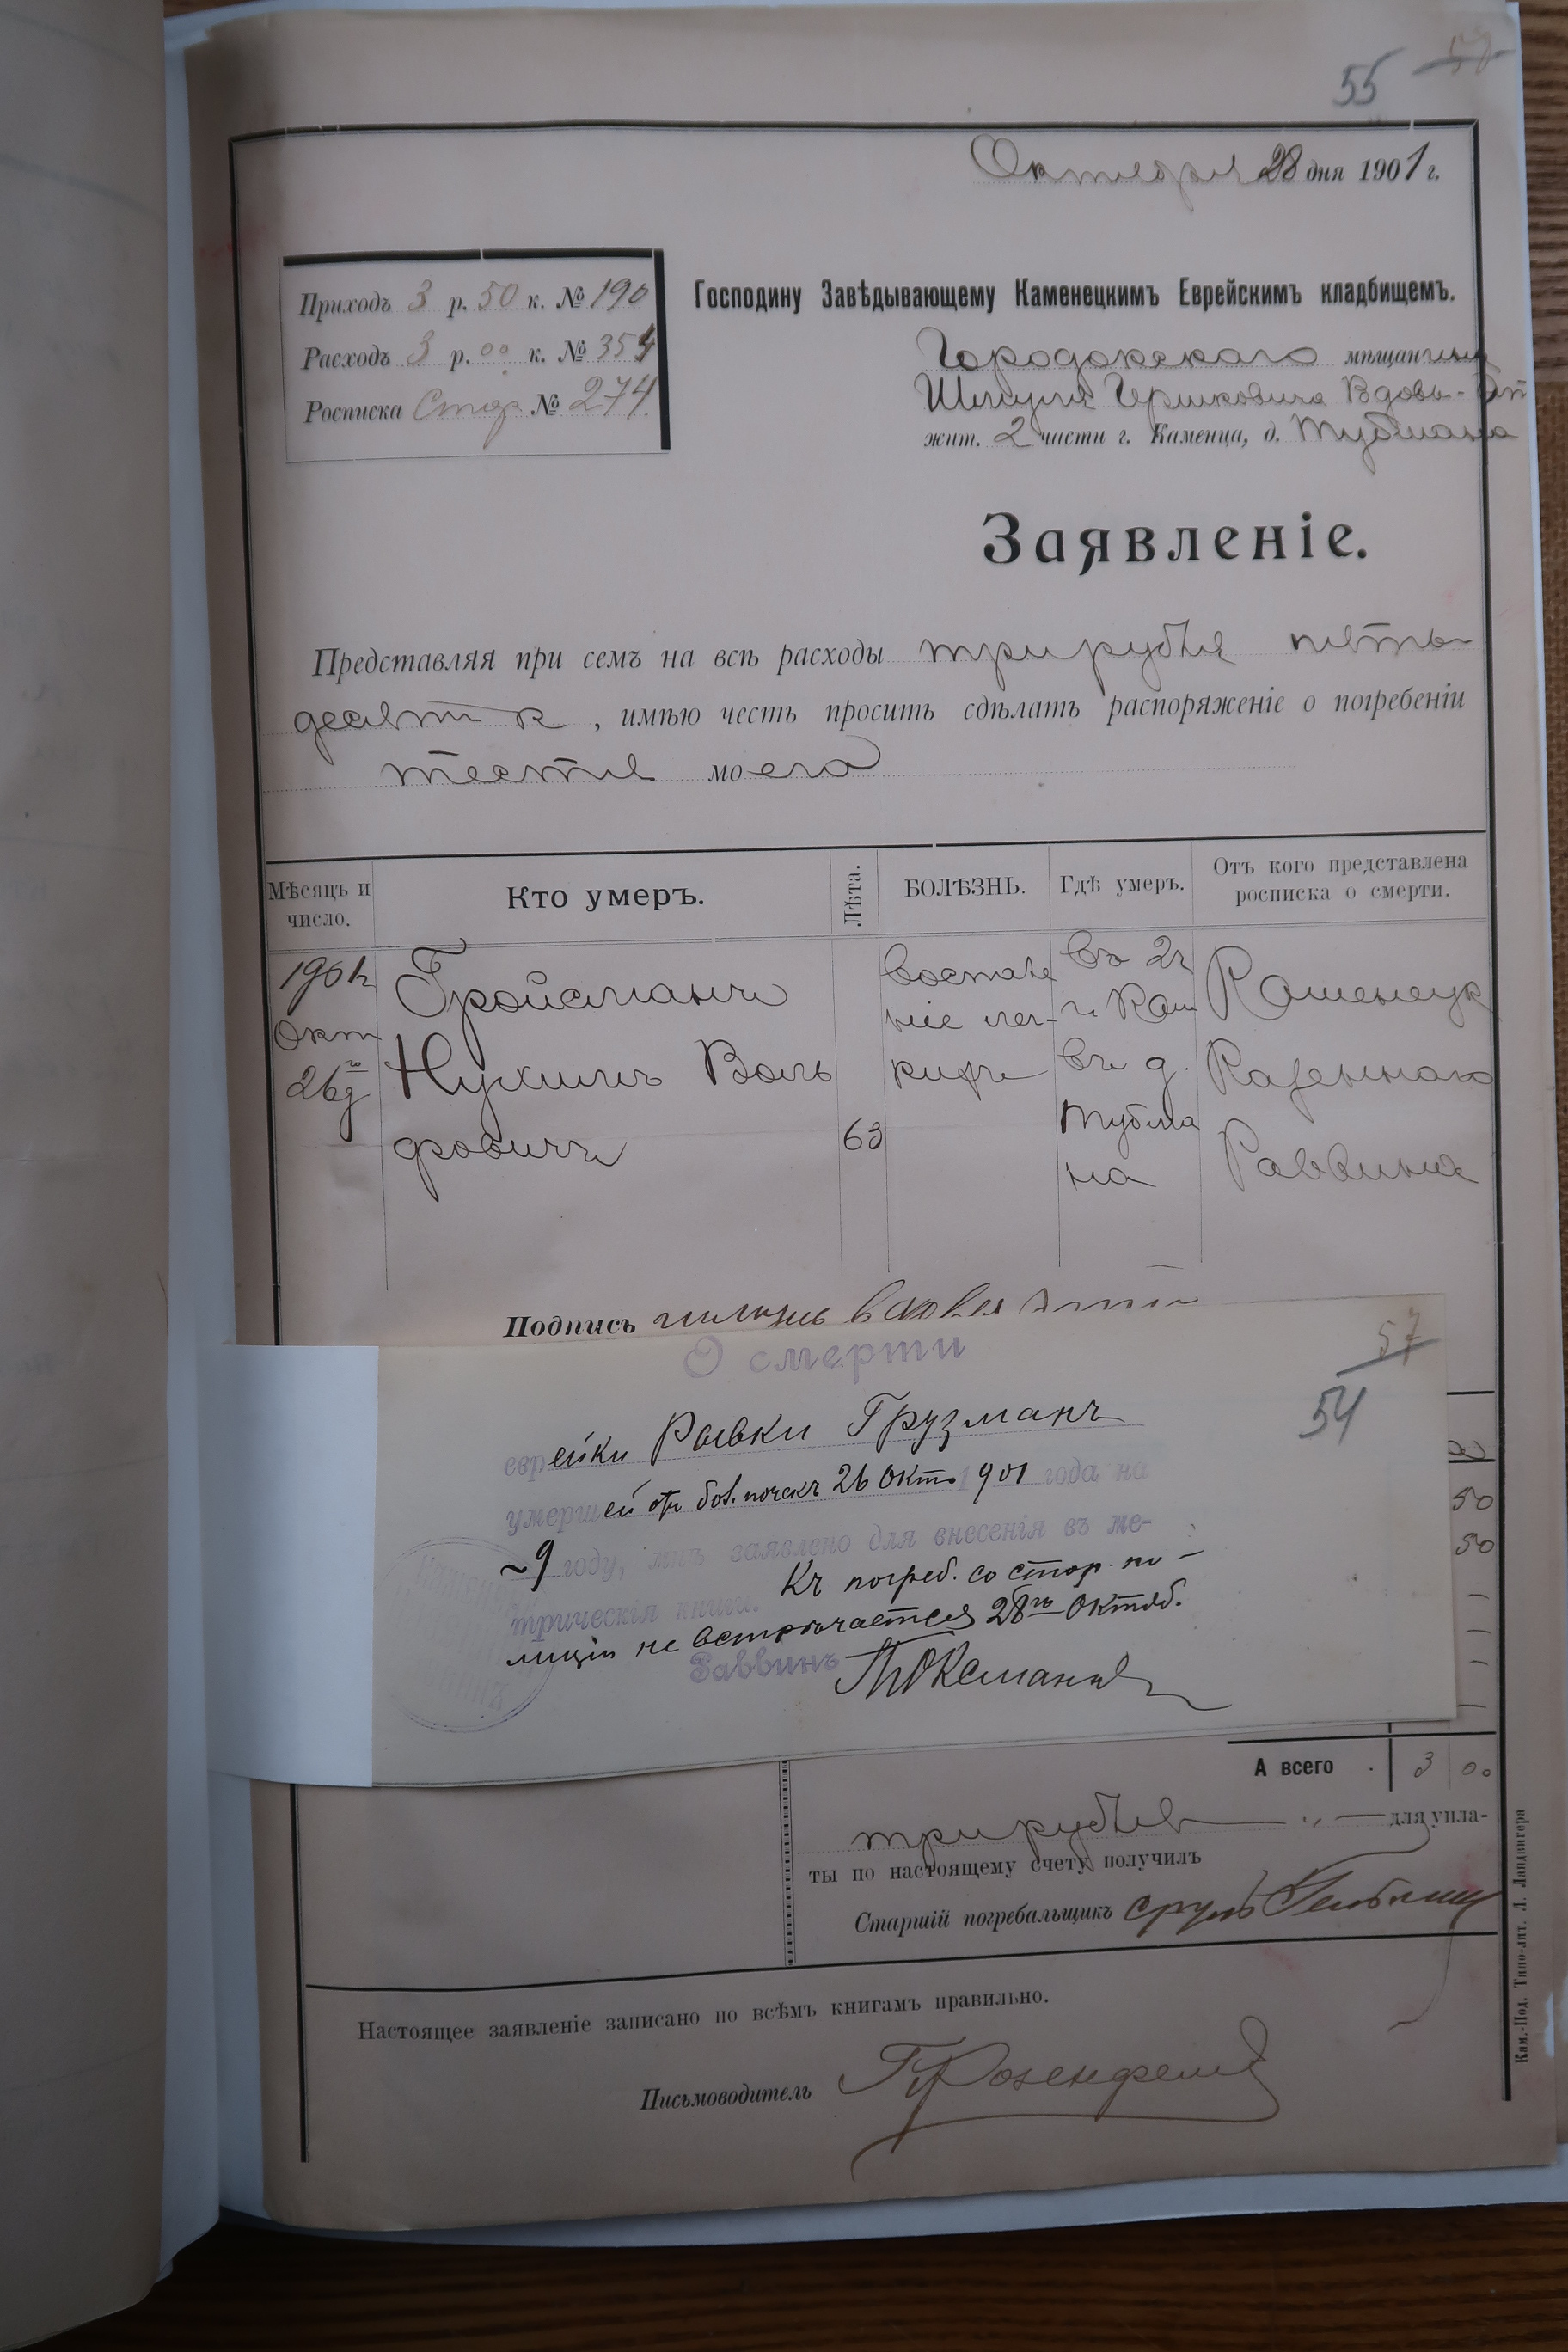 55 57
Октября 28 дня 1901 г.
Приходъ 3 р. 50 к. № 190
Расходъ 3 р. 00 к. № 354
Росписка Стар. № 274
Господину Завѣдывающему Каменецкимъ Еврейскимъ кладбищемъ.
Городокского мѣщанина
Гершковича Вдови-
жит. 2 части г. Каменца, д. Тубмана
Заявленіе.
Представляя при семъ на всѣ расходы три рубля пять-
десятъ к, имѣю честь просить сдѣлать распоряженіе о погребеніи
тестя моего
Мѣсяцъ и число.
Кто умеръ.
Лѣта.
БОЛѢЗНЬ.
Гдѣ умеръ.
Отъ кого представлена росписка о смерти.
1901
Окт
26 д
Гройсманъ
Нухимъ Воль
фовичъ
63
Воспале
ніе лег-
кихъ
въ 2 ч
г. Кам
въ д.
Тубма
на
Каменецк
Казеннаго
Раввина
Подпись
О смерти
57
54
еврейки Рывки Грузманъ
умершей отъ бол. почекъ 26 Окт. 1901 года на
9 году, мнѣ заявлено для внесенія въ ме-
трическія книги. Къ погреб. со стор. по-
лиціи не встрѣчается 28го Октяб.
Раввинъ
50
50
А всего 3 00
три рубля — " — для упла-
ты по настоящему счету получилъ
Старшій погребальщикъ Сруль
Настоящее заявленіе записано по всѣмъ книгамъ правильно.
Письмоводитель Розенфельд
Кам.-Под. Типо-лит. Л. Ландвигера